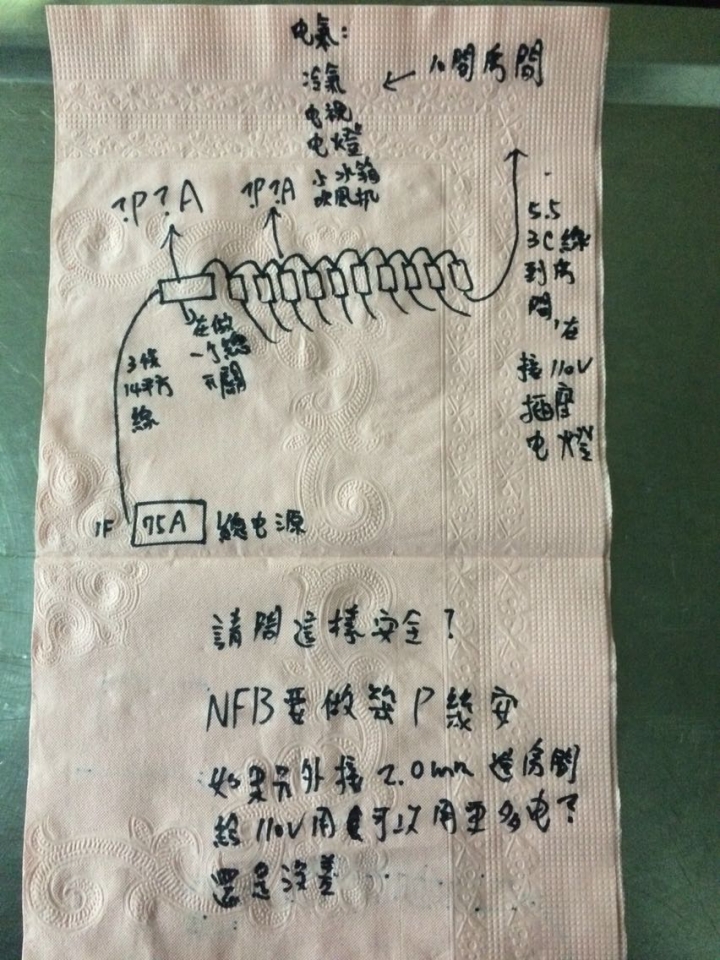 电氣:
冷氣
电視
电燈
小冰箱
吹風机
10間房間
?P?A
?P?A
5.5
3C線
到房
間,在
接110V
插座
电燈
在做
一个總
開關
3條
14平方
線
1F
75A
總电源
請問這樣安全?
NFB要做幾P幾安
如果另外接2.0mm進房間
給110V用可以用更多电?
還是沒差